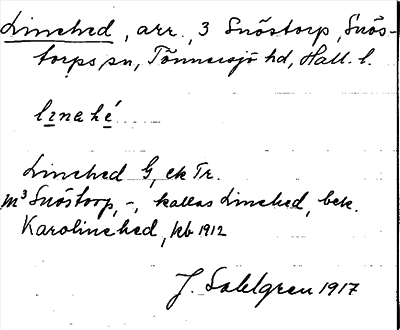 Linehed, arr., 3 Snöstorp, Snös-
torps sn, Tönnersjö hd, Hall. l.
linahé
Linehed G, ek Tr.
m³ Snöstorp, -, kallas Linehed, bek.
Karolinehed, kb 1912
J. Sahlgren 1917